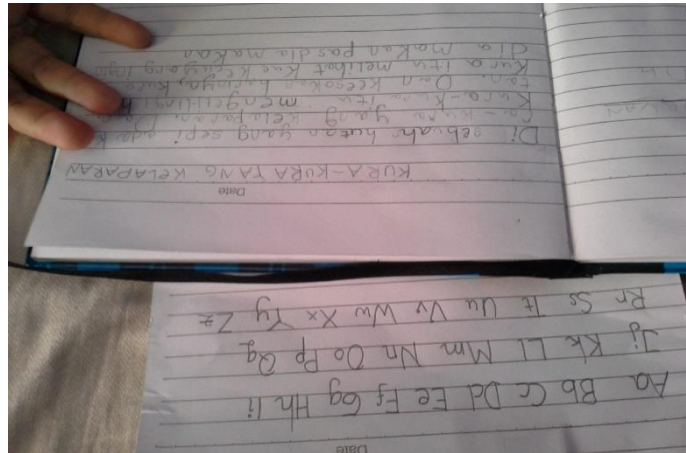 Date
Aa Bb Cc Dd Ee Ff Gg Hh Ii
Jj Kk Ll Mm Nn Oo Pp Qq
Rr Ss Tt Uu Vv Ww Xx Yy Zz
Date
KURA-KURA YANG KELAPARAN
Di sebuah hutan yang sepi ada k
ra-kura yang kelaparan.
Kura-kura itu mengelilingi h
tan. Dan keesokan harinya, kura
kura itu melihat kue keju yang ingin
dia makan pas dia makan